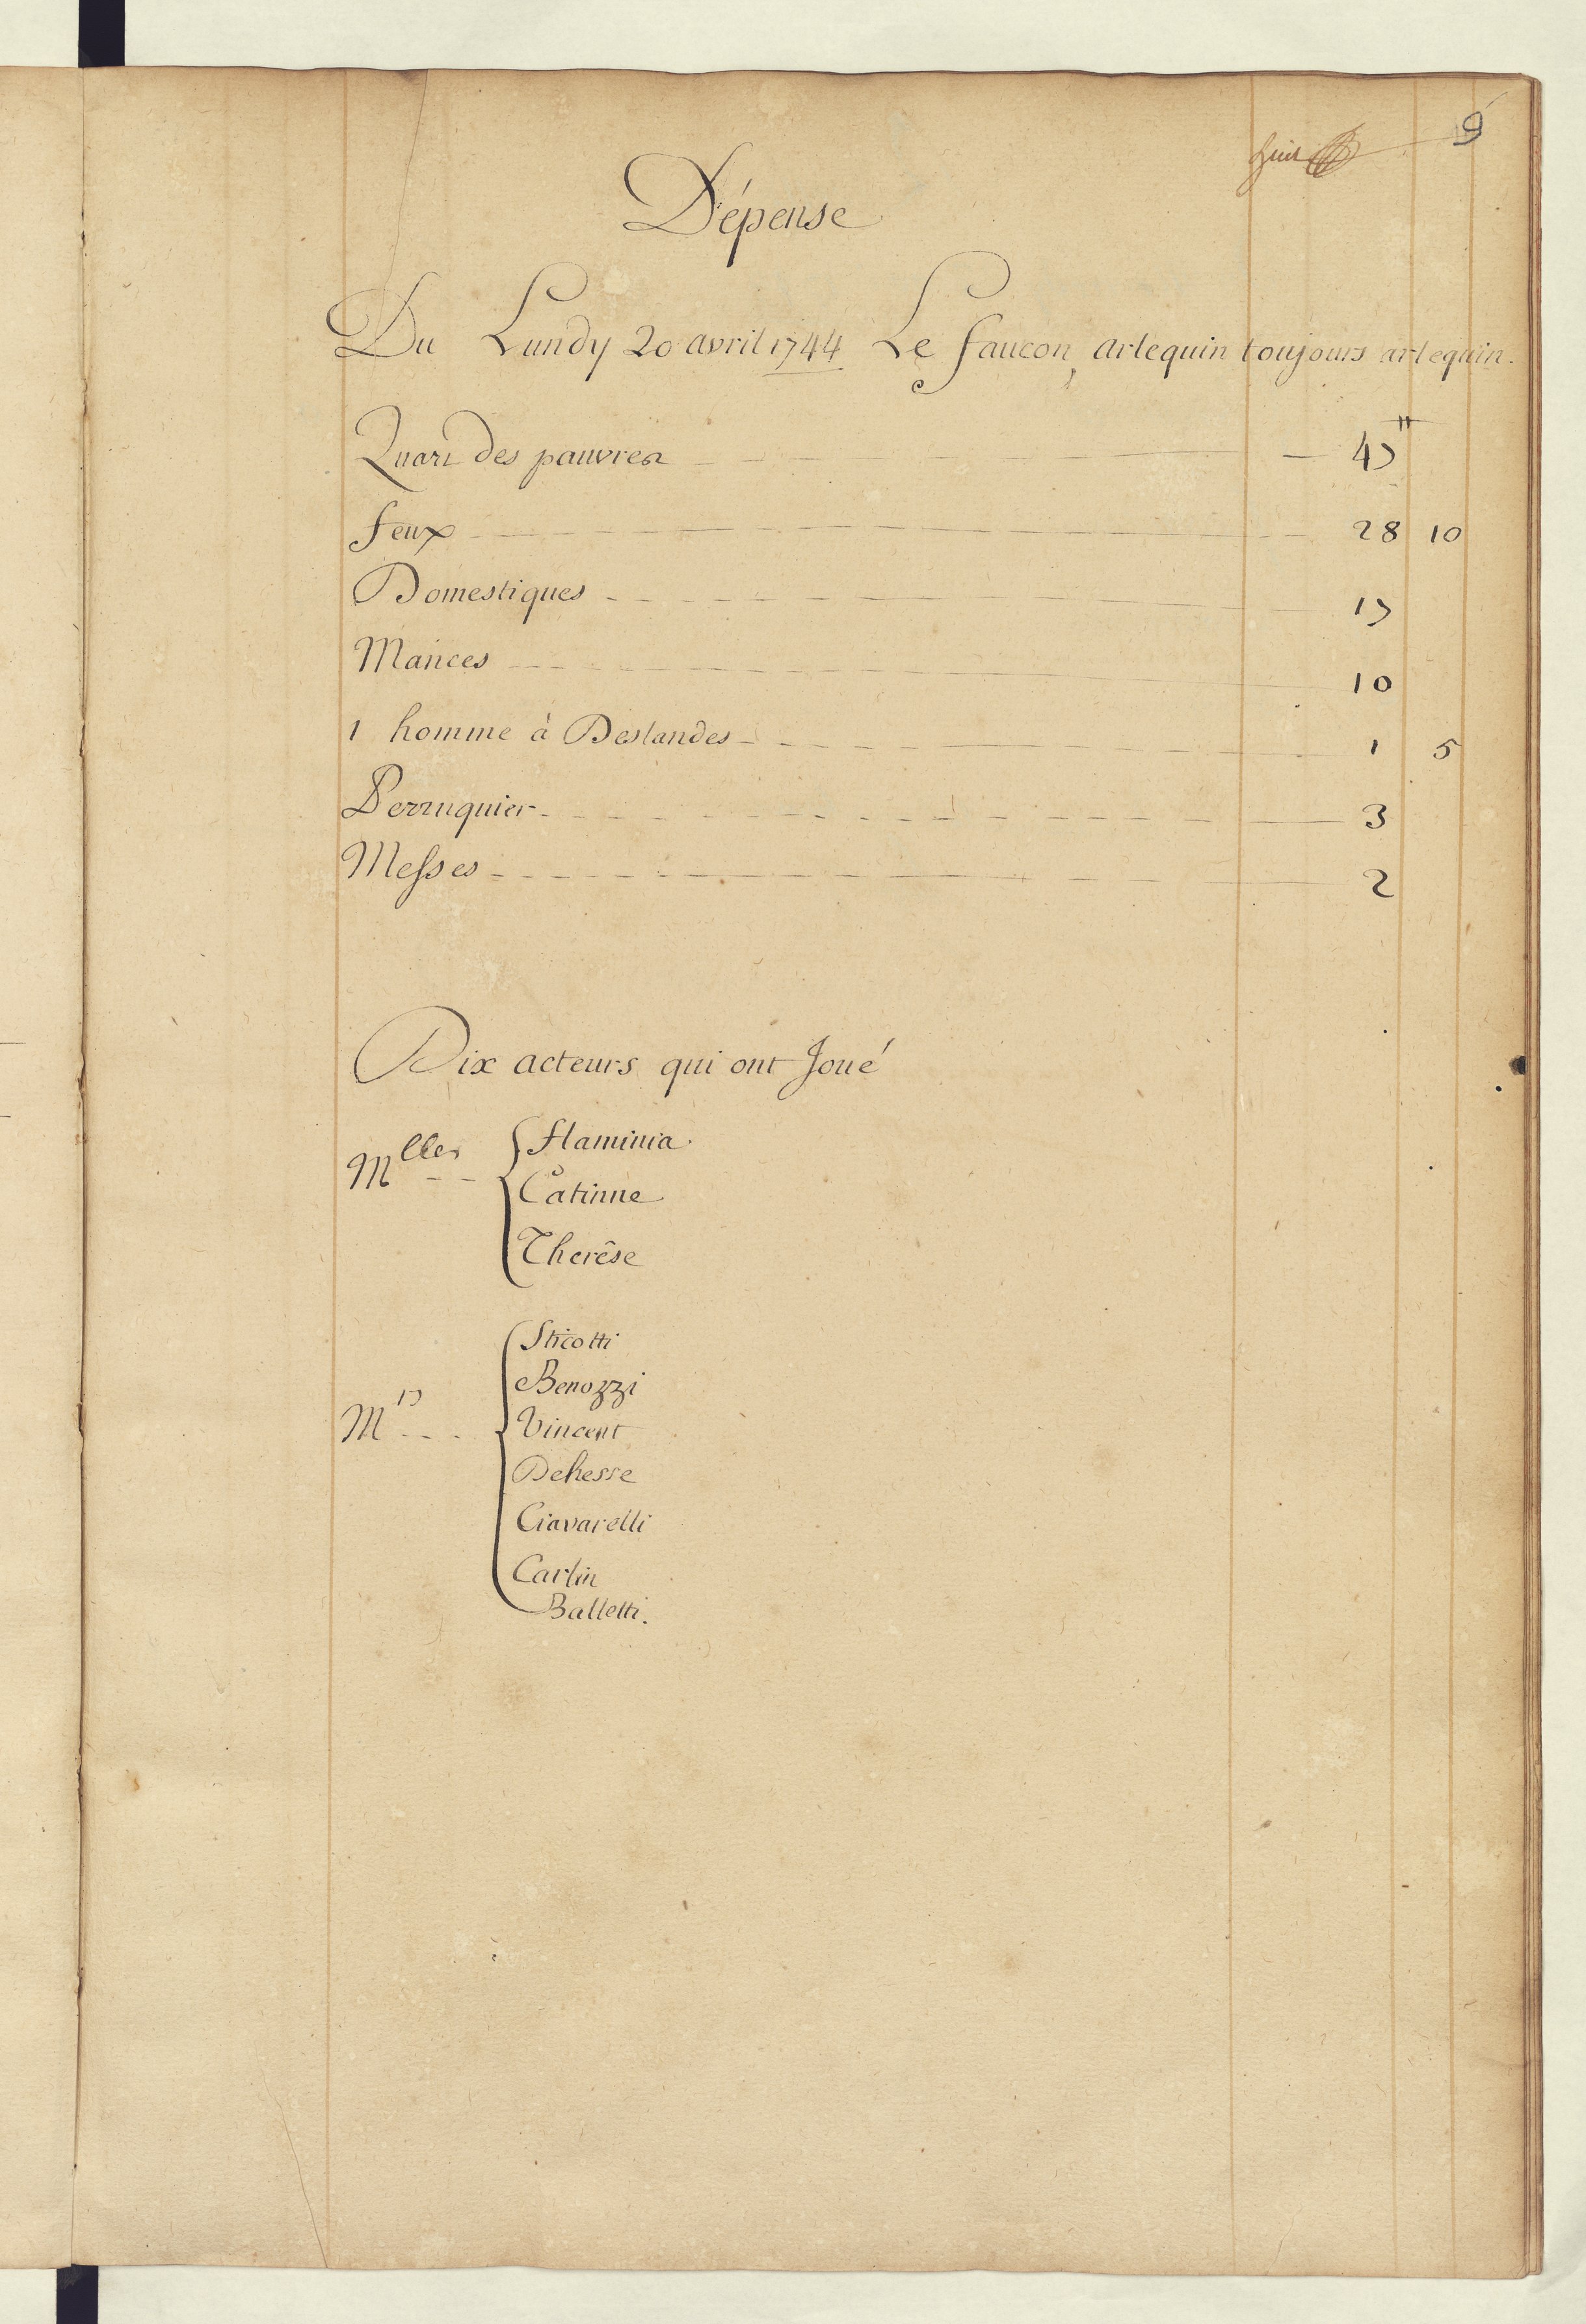 huit
9
Dépense
Du Lundy 20 avril 1744 Le faucon, arlequin toujours arlequin.
Quart des pauvres 47"
feux 28 10
Domestiques 17
Mances 10
1 homme à Deslandes 1 5
Perruquier 3
Messes 2
Dix acteurs qui ont Joué
Mlles
flaminia
Catinne
Therêse
Mrs
Sticotti
Benozzi
Vincent
Dehesse
Ciavarelli
Carlin
Balletti.